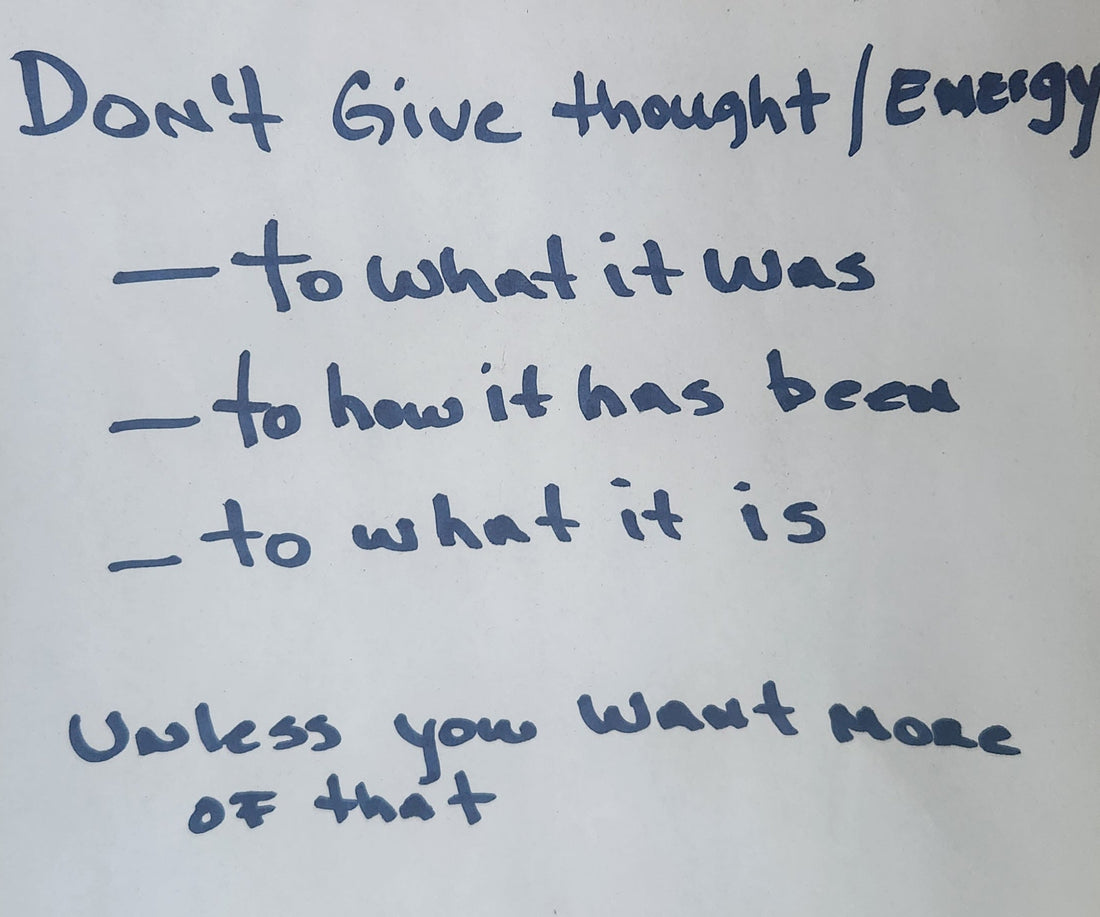 Don't Give thought/Energy
— to what it was
— to how it has been
— to what it is
Unless you want more
of that